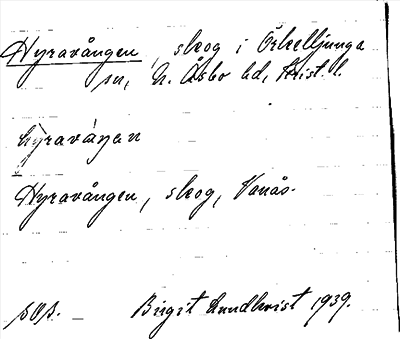 Hyravången, skog i Örkelljunga
sn, N. Åsbo hd, Krist. l.
hyraváŋan
Hyravången, skog, Vanås.
Birgit Lundkvist 1939.